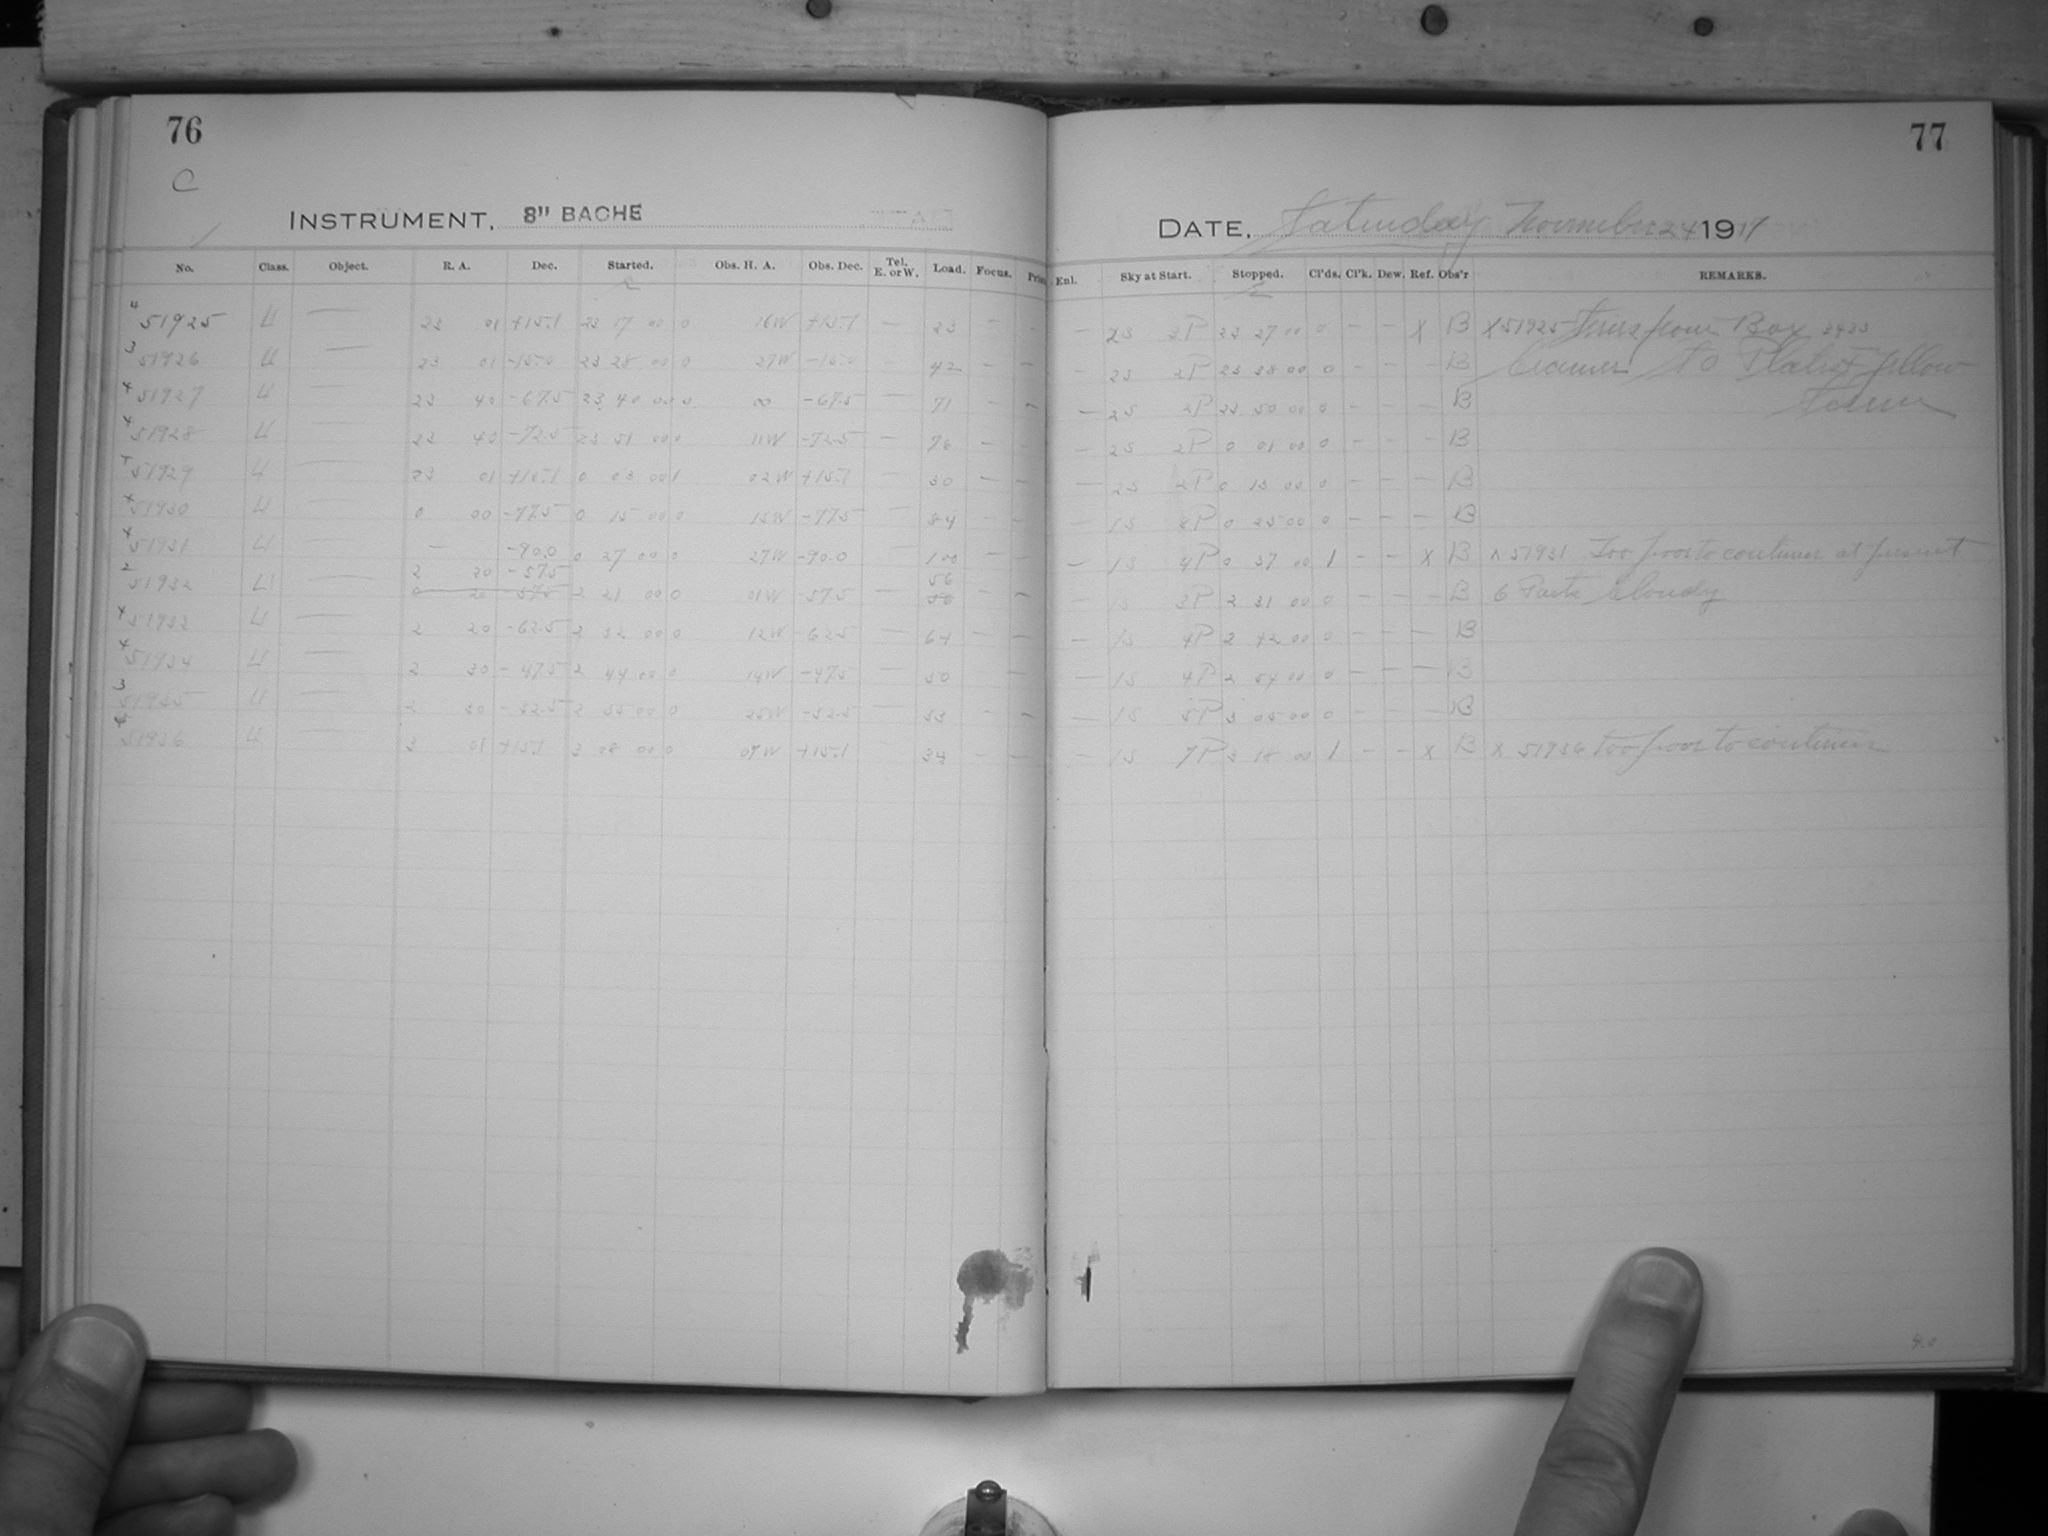 76
77
C
INSTRUMENT, 8" BACHE
DATE, Saturday November 24 1917
No. Class. Object. R. A. Dec. Started. Obs. H. A. Obs. Dec. Tel. E. or W. Load. Focus. Enl. Sky at Start. Stopped. Cl'ds. Cl'k. Dew. Ref. Obs'r REMARKS.
4 51925 — 23 01 +15.1 23 17 00 0 16W +15.1 — 23 - - - 2P 23 27 00 0 - - X B X 51925 from Box 3433
3 51926 — 23 01 -15.0 23 28 00 0 27W -15.0 42 - - - 2P 23 38 00 0 - - - B Cramer to follow
4 51927 — 23 40 -67.5 23 40 00 0 00 -67.5 — 71 - - - 2P 23 50 00 0 - - - B
4 51928 — 23 40 -72.5 23 51 00 0 11W -72.5 — 76 - - - 2P 0 01 00 0 - - - B
51929 — 23 01 +15.1 0 03 00 1 02W +15.1 — 30 - - - 2P 0 13 00 0 - - - B
4 51930 — 0 00 -77.5 0 15 00 0 15W -77.5 — 84 - - 0 25 00 0 - - - B
4 51931 — — -90.0 0 27 00 0 27W -90.0 — 100 - - - 4P 0 37 00 1 X B X 51931 Too poor to continue at present
2 51932 — 2 20 -57.5 2 21 00 0 01W -57.5 — 56 - - - 3P 2 31 00 0 - - - B 6 Parts Cloudy
4 51933 — 2 20 -62.5 2 32 00 0 12W -62.5 — 64 - - - 4P 2 42 00 0 - - - B
4 51934 — 2 30 -47.5 2 44 00 0 14W -47.5 — 50 - - 4P 2 54 00 0 - - - B
3 51935 — 2 30 -52.5 2 55 00 0 25W -52.5 — 53 - - - 5P 3 05 00 0 - - - B
51936 — 3 01 +15.1 3 08 00 0 07W +15.1 34 - - - 7P 3 18 00 1 - - X B X 51936 too poor to continue